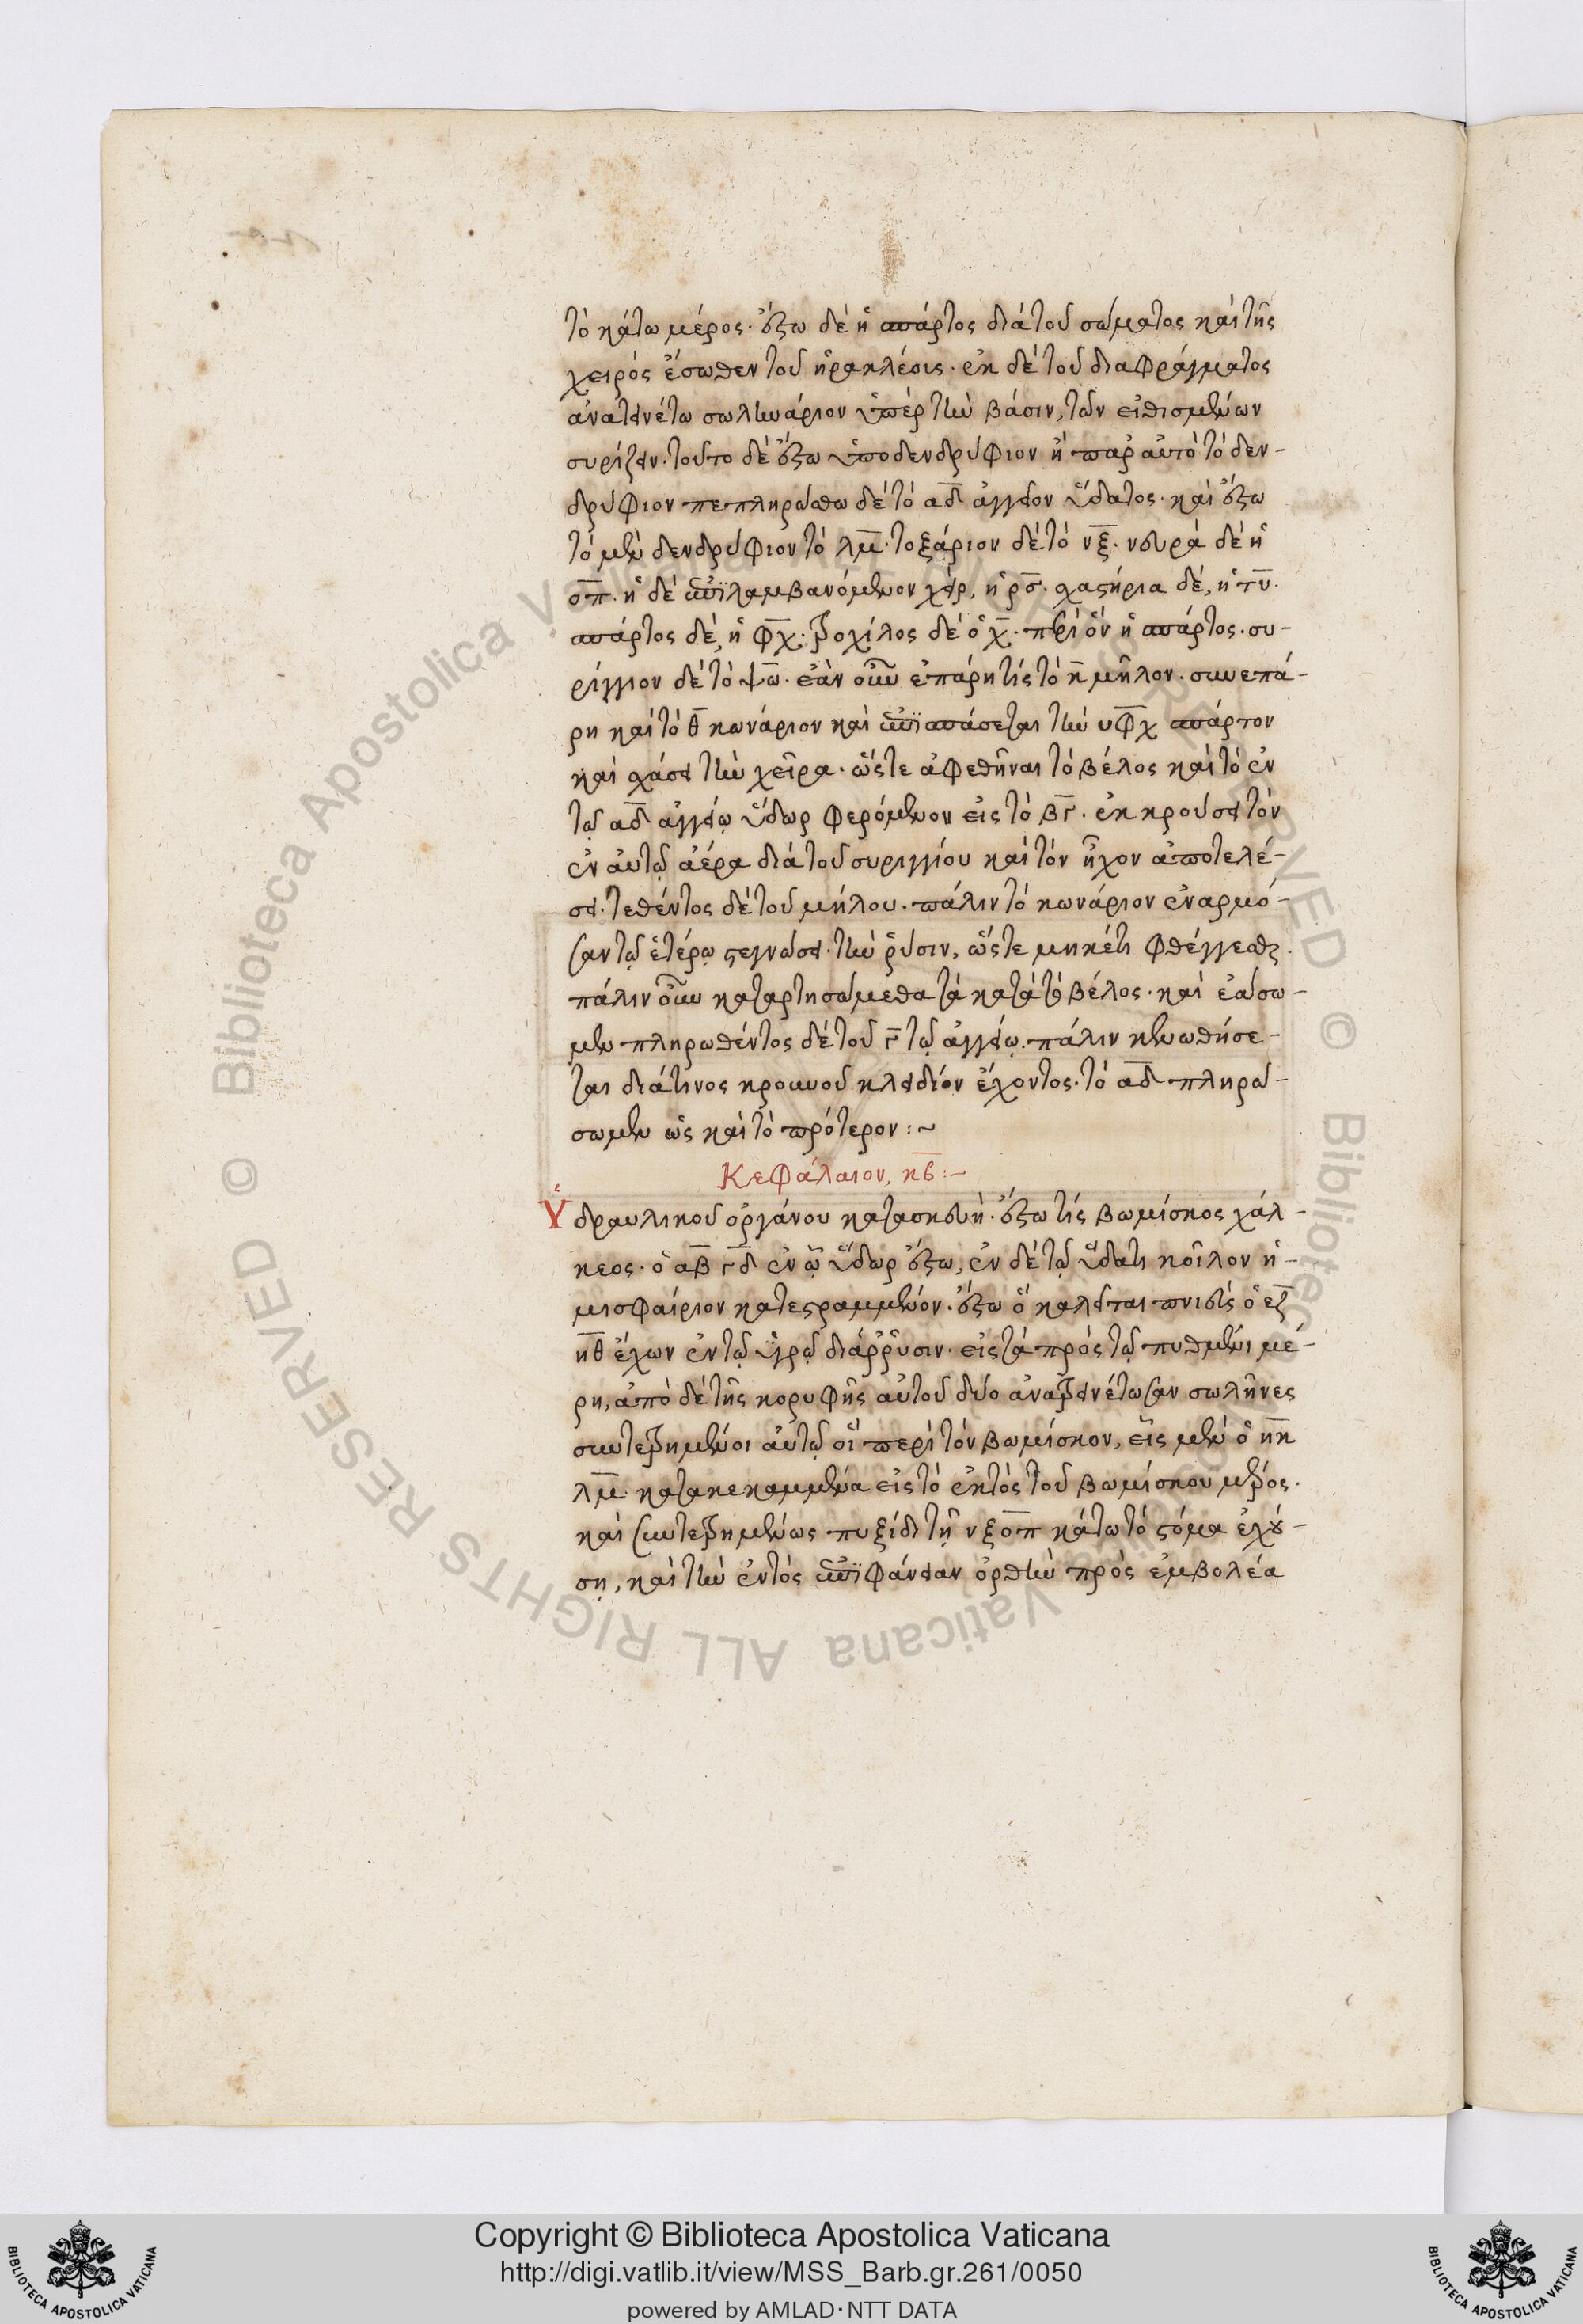 τὸ κάτω μέρος· ἔστω δὲ ἡ σπάρτος διὰ τοῦ σώματος καὶ τῆς
χειρὸς ἔσωθεν τοῦ ἡρακλέους· ἐκ δὲ τοῦ διαφράγματος
ἀνατεινέτω σωληνάριον ὑπὲρ τὴν βάσιν, τῶν εἰθισμένων
συρίζειν· τοῦτο δὲ ἔστω ὑπὸ δενδρύφιον ἢ παρ' αὐτὸ τὸ δεν-
δρύφιον πεπληρώσθω δὲ τὸ αδ ἀγγεῖον ὕδατος· καὶ ἔστω
τὸ μὲν δενδρύφιον τὸ λμ· τοξάριον δὲ τὸ νξ· νευρὰ δὲ ἡ
οπ· ἡ δὲ ἐπιλαμβανόμενον χεὶρ, ἡ ρσ· σχαστήρια δὲ, ἡ τυ·
σπάρτος δὲ, ἡ φχ· τροχίλος δὲ ὁ χ· περὶ ὃν ἡ σπάρτος· συ-
ρίγγιον δὲ τὸ ψω· ἐὰν οὖν ἐπάρη τίς τὸ κ μῆλον· συνεπά-
ρη καὶ τὸ θ κωνάριον καὶ ἐπισπάσεται τὴν υφχ σπάρτον
καὶ σχάσει τὴν χεῖρα· ὥστε ἀφεθῆναι τὸ βέλος καὶ τὸ ἐν
τῷ αδ ἀγγείῳ ὕδωρ φερόμενον εἰς τὸ βγ· ἐκκρούσει τὸν
ἐν αὐτῷ ἀέρα διὰ τοῦ συριγγίου καὶ τὸν ἦχον ἀποτελέ-
σει· τεθέντος δὲ τοῦ μήλου· πάλιν τὸ κωνάριον ἐναρμό-
σαν τῷ ἑτέρῳ στεγνώσει· τὴν ῥύσιν, ὥστε μηκέτι φθέγγεσθαι·
πάλιν οὖν καταρτησώμεθα τὰ κατὰ τὸ βέλος· καὶ ἐάσω-
μεν πληρωθέντος δὲ τοῦ γ τῷ ἀγγείῳ· πάλιν κενωθήσε-
ται διά τινος κρουνοῦ κλειδίον ἔχοντος· τὸ αδ πληρώ-
σωμεν ὡς καὶ τὸ πρότερον :~
Κεφάλαιον, κβ :-
Ὑδραυλικοῦ ὀργάνου κατασκευή· ἔστω τίς βωμίσκος χάλ-
κεος· ὁ αβγδ ἐν ᾧ ὕδωρ ἔστω, ἐν δὲ τῷ ὕδατι κοῖλον ἡ-
μισφαίριον κατεστραμμένον· ἔστω ὃ καλεῖται πνιγεὺς ὁ εζ
ηθ ἔχων ἐν τῷ ὑγρῷ διάρρυσιν· εἰς τὰ πρὸς τῷ πυθμένι μέ-
ρη, ἀπὸ δὲ τῆς κορυφῆς αὐτοῦ δύο ἀνατεινέτωσαν σωλῆνες
συντετρημένοι αὐτῷ οἱ περὶ τὸν βωμίσκον, εἷς μὲν ὁ ηκ
λμ· κατακεκαμμένα εἰς τὸ ἐκτὸς τοῦ βωμίσκου μέρος·
καὶ συντετρημένως πυξίδι τῇ νξοπ κάτω τὸ στόμα ἐχού-
σῃ, καὶ τὴν ἐντὸς ἐπιφάνειαν ὀρθὴν πρὸς ἐμβολέα
Copyright © Biblioteca Apostolica Vaticana
http://digi.vatlib.it/view/MSS_Barb.gr.261/0050
powered by AMLAD · NTT DATA
BIBLIOTECA APOSTOLICA VATICANA
BIBLIOTECA APOSTOLICA VATICANA
© Biblioteca Apostolica Vaticana ALL RIGHTS RESERVED © Biblioteca Apostolica Vaticana ALL RIGHTS RESERVED